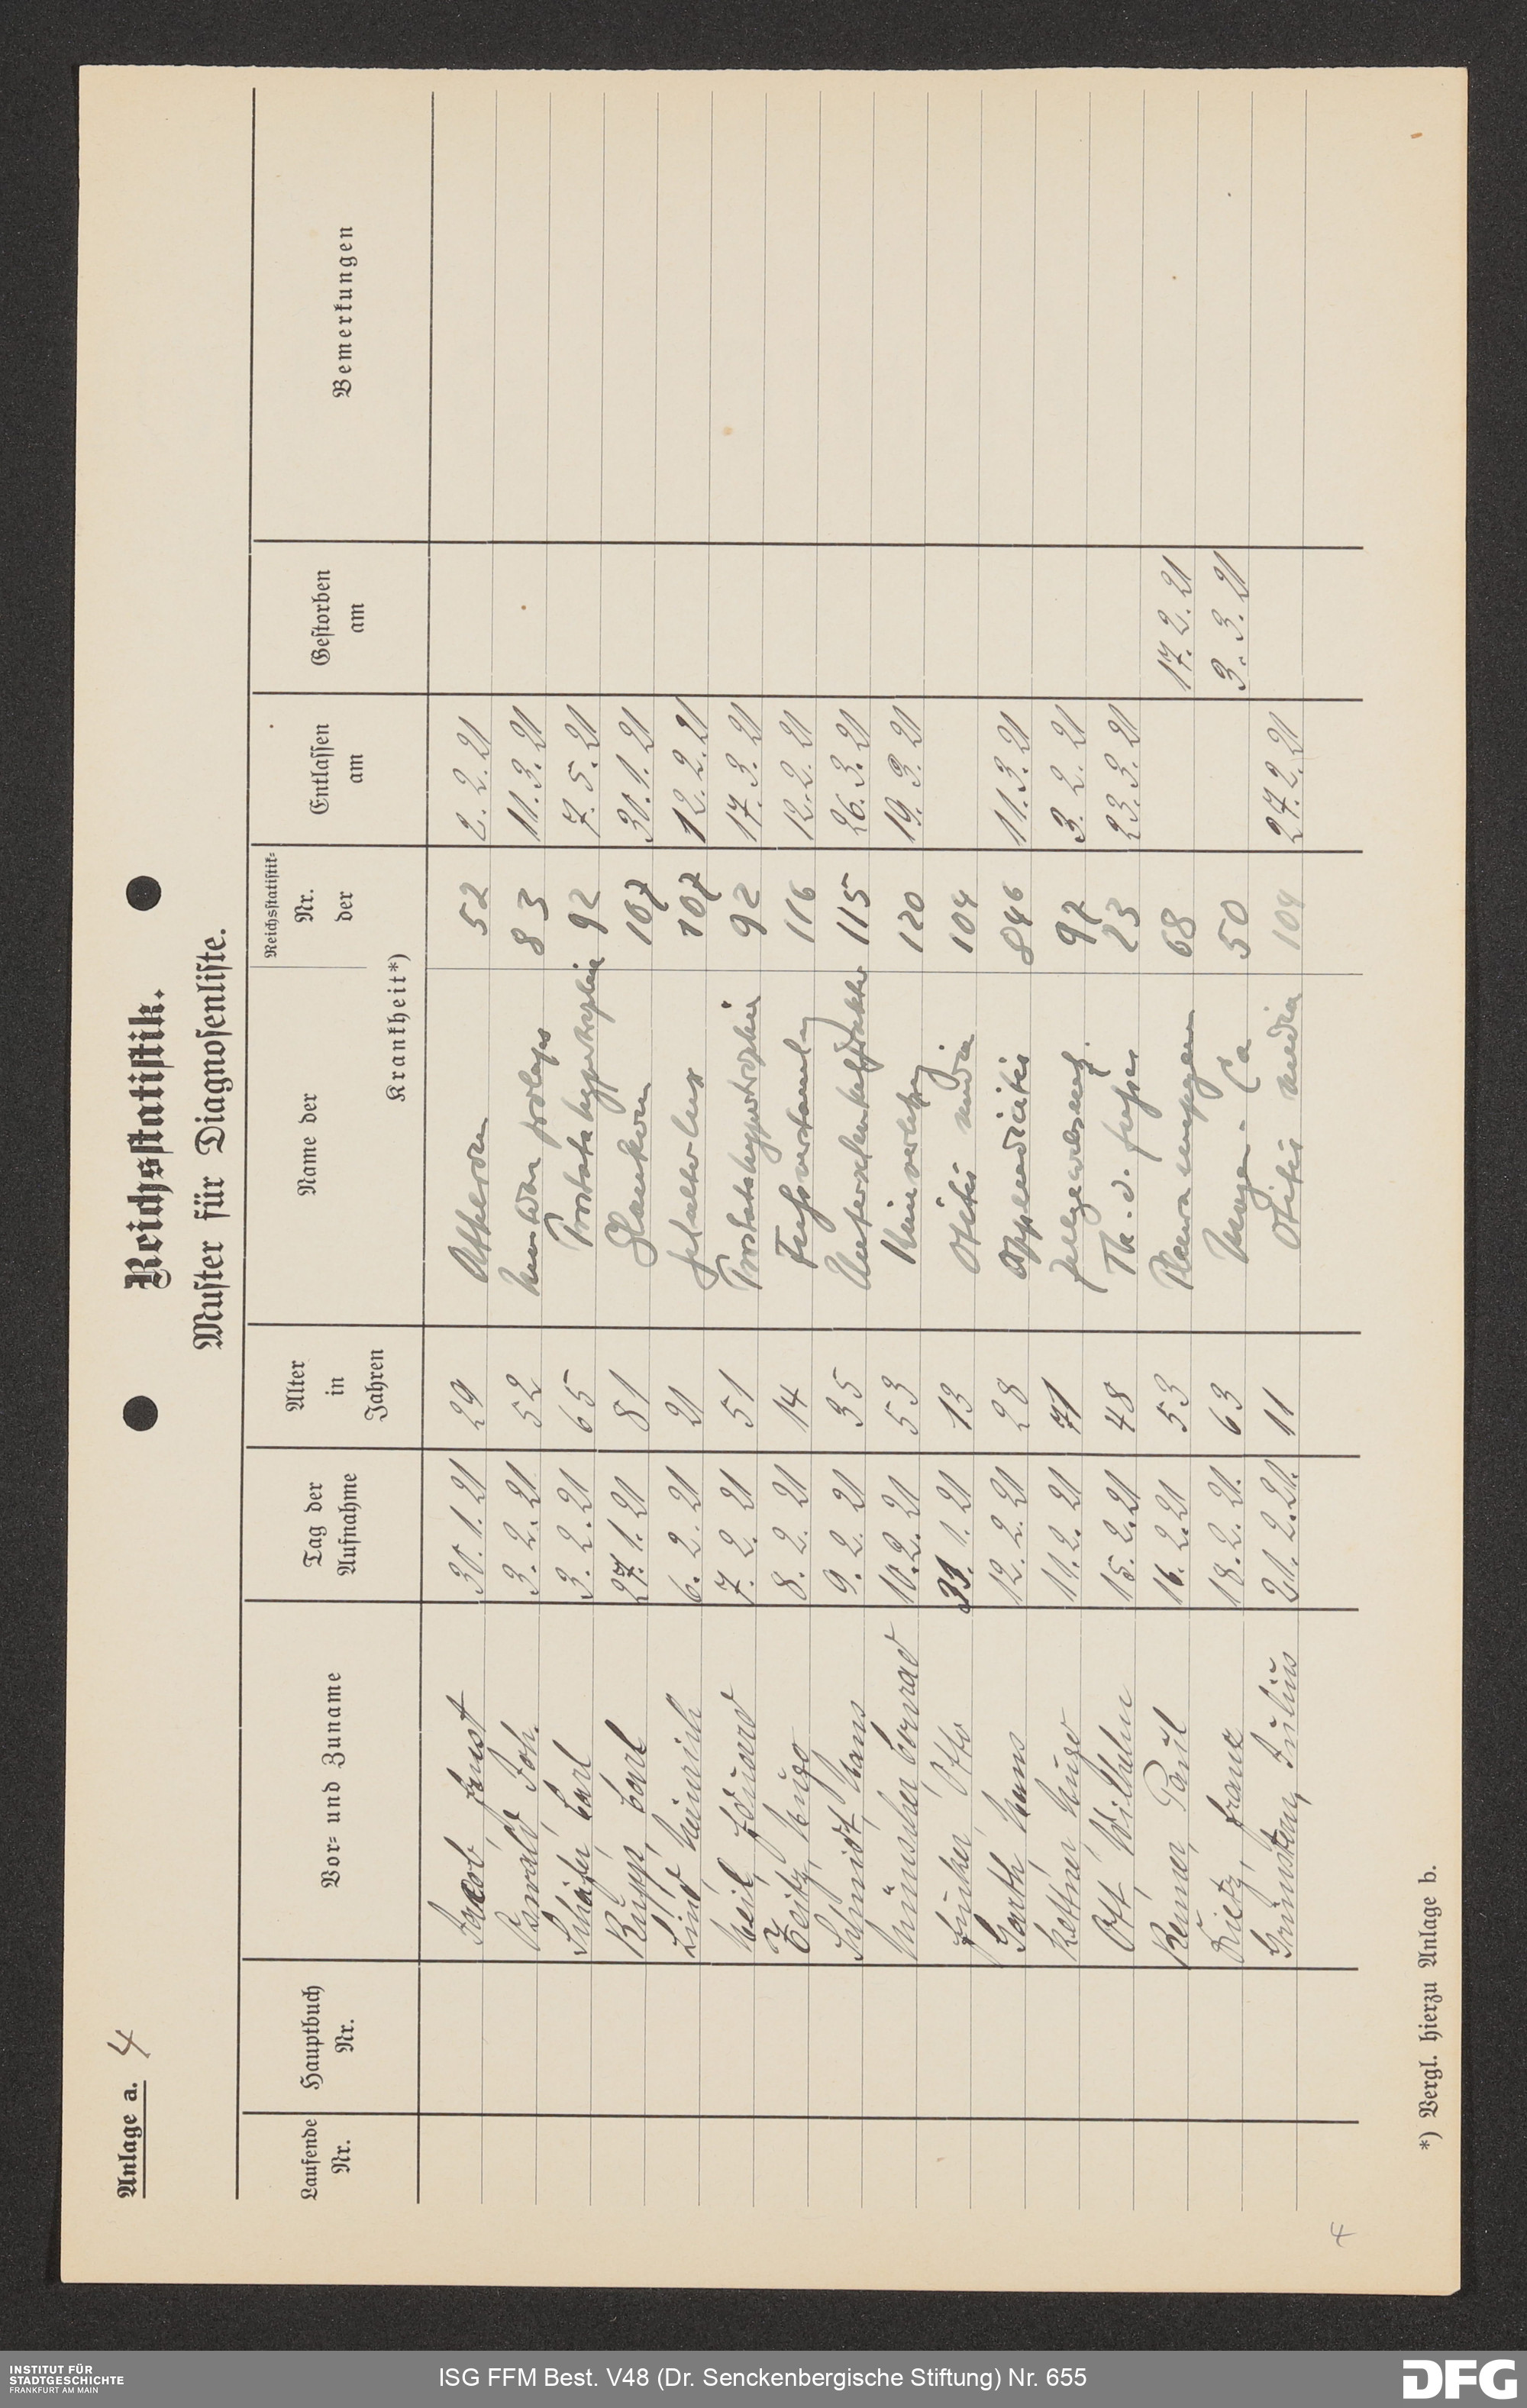 Anlage a. 4
Reichsstatistik.
Muster für Diagnosenliste.
Laufende Nr. Hauptbuch Nr. Vor- und Zuname Tag der Aufnahme Alter in Jahren Name der Reichsstatistik-Nr. der Krankheit*) Entlassen am Gestorben am Bemerkungen
Jacob, Ernst 30. 1. 21 29 52 2. 2. 21
Oswald, Joh. 3. 2. 21 52 prolaps 83 11. 3. 21
Schäfer, Carl 3. 2. 21 65 Prostatahypertrophie 92 7. 5. 21
Rupp, Carl 27. 1. 21 81 Glaukom 107 30. 1. 21
Lind, Heinrich 6. 2. 21 21 107 12. 2. 21
Weil, Eduard 7. 2. 21 51 Prostatahypertrophie 92 17. 3. 21
Zeitz, Hugo 8. 2. 21 14 116 12. 2. 21
Schmidt, Hans 9. 2. 21 35 115 26. 3. 21
Münscher, Conrad 10. 2. 21 53 120 19. 3. 21
Juncker, Otto 31. 1. 21 13 Otitis media 104
Garth, Hans 12. 2. 21 28 Appendicitis 846 11. 3. 21
Kettner, Hugo 11. 2. 21 71 97 3. 2. 21
Ott, Wilhelm 15. 2. 21 48 Tb. d. Fusses 23 23. 3. 21
Renner, Paul 16. 2. 21 53 68 17. 2. 21
Franz 18. 2. 21. 63 Magen-Ca 50 3. 3. 21
Julius 21. 2. 21. 11 Otitis media 104 27. 2. 21
*) Vergl. hierzu Anlage b.
4
INSTITUT FÜR
STADTGESCHICHTE
FRANKFURT AM MAIN
ISG FFM Best. V48 (Dr. Senckenbergische Stiftung) Nr. 655
DFG